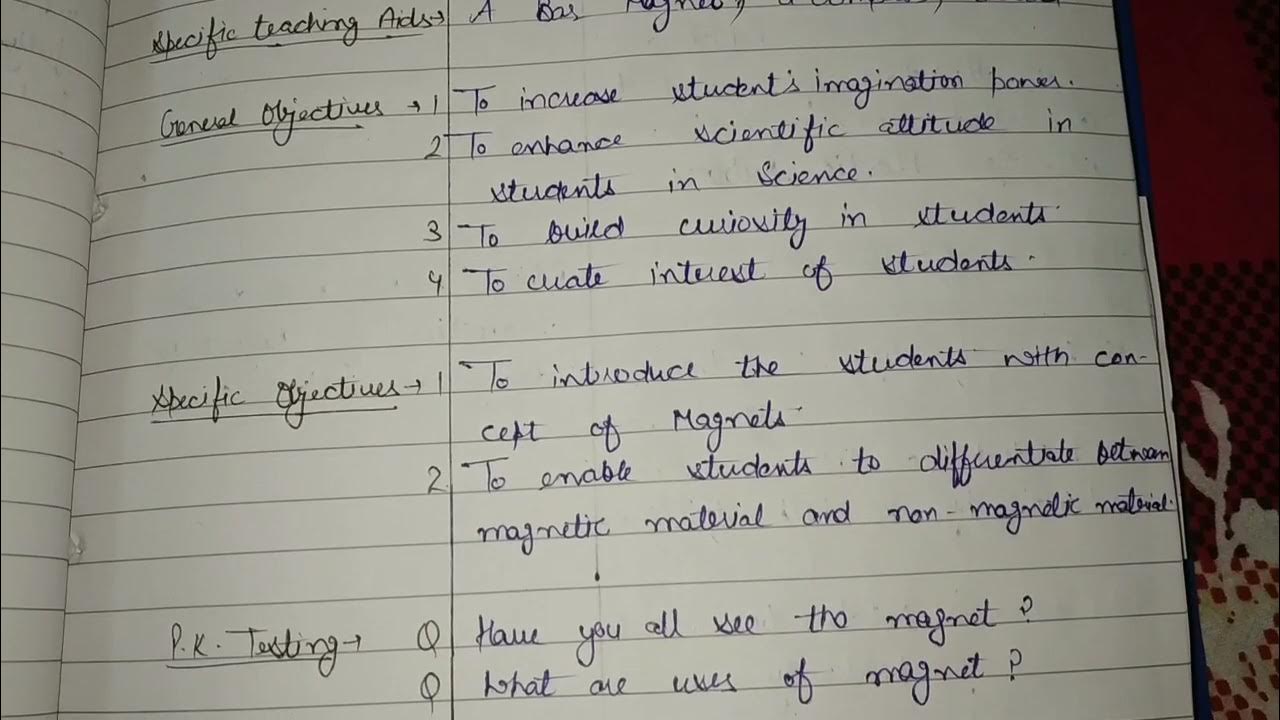 Specific teaching Aids → A Bar Magnet, a compass,
General Objectives → 1 To increase student's imagination power.
2 To enhance scientific attitude in
students in Science.
3 To build curiosity in students.
4 To create interest of students.
Specific Objectives → 1 To introduce the students with con-
cept of Magnets.
2. To enable students to differentiate between
magnetic material and non-magnetic material.
P.K. Testing → Q Have you all see the magnet?
Q What are uses of magnet?